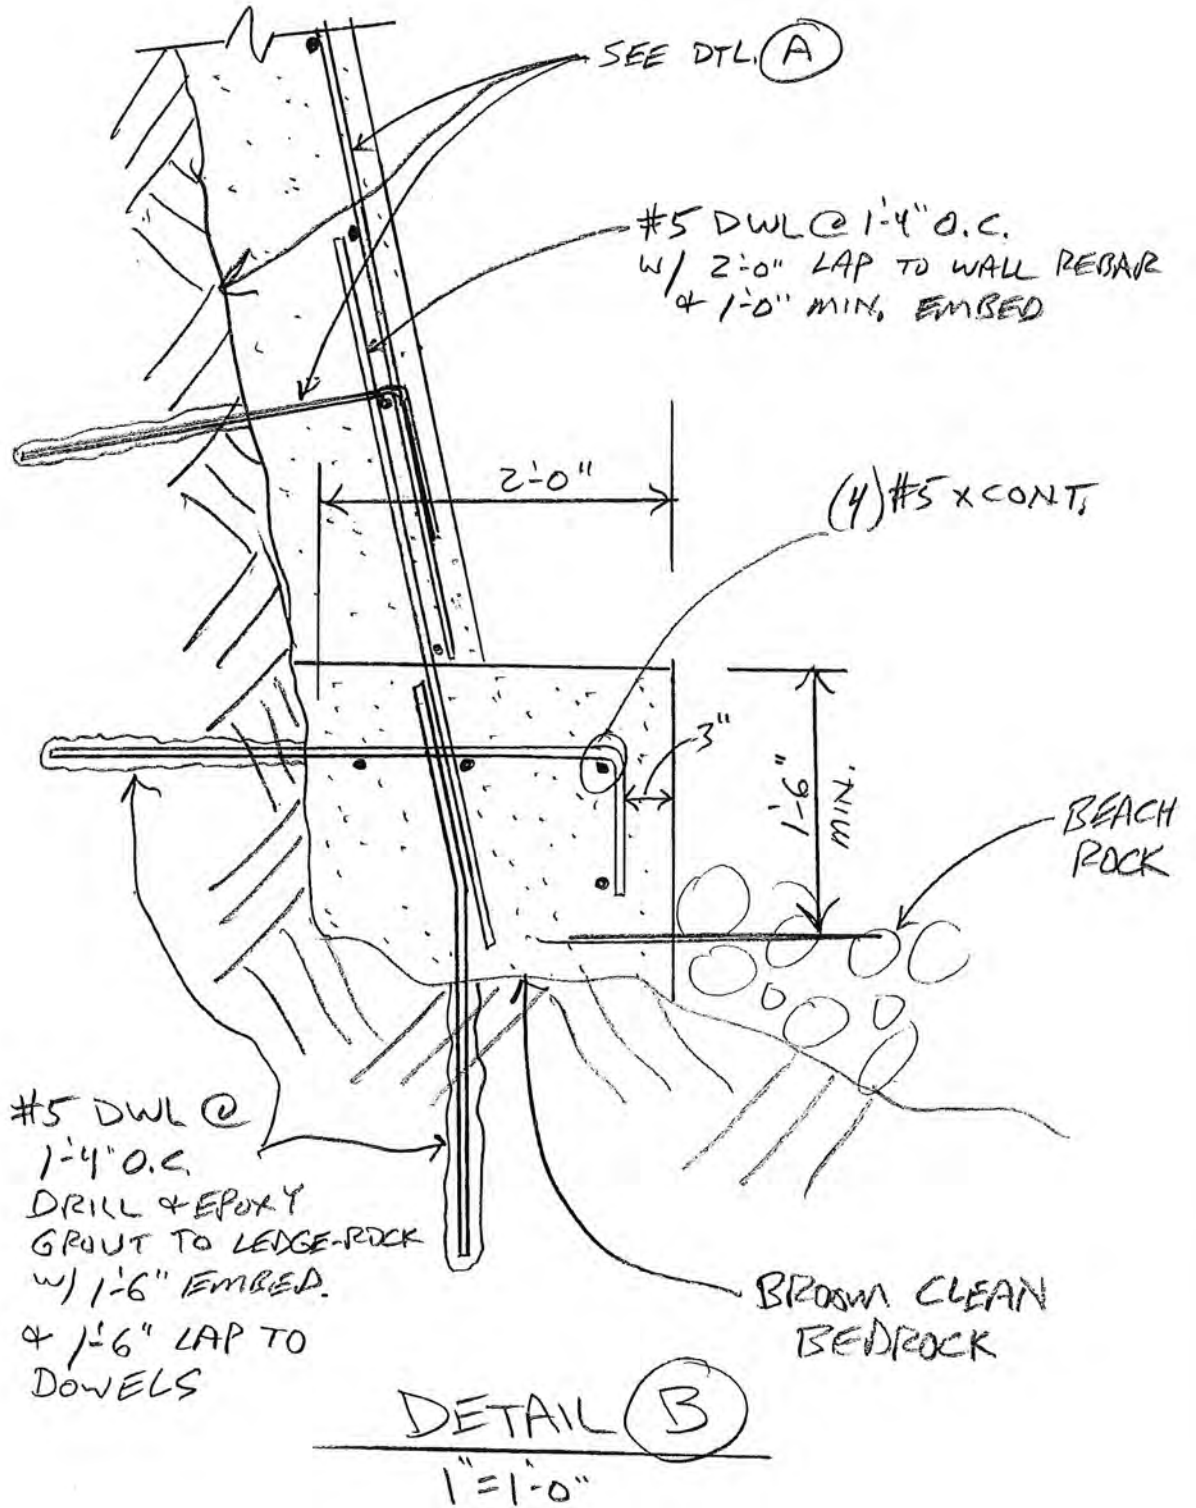 SEE DTL. A
#5 DWL @ 1'-4" O.C.
W/ 2'-0" LAP TO WALL REBAR
& 1'-0" MIN. EMBED
2'-0"
(4) #5 X CONT.
3"
1'-6"
MIN.
BEACH
ROCK
#5 DWL @
1'-4" O.C.
DRILL & EPOXY
GROUT TO LEDGE-ROCK
W/ 1'-6" EMBED.
& 1'-6" LAP TO
DOWELS
BROOM CLEAN
BEDROCK
DETAIL B
1"=1'-0"